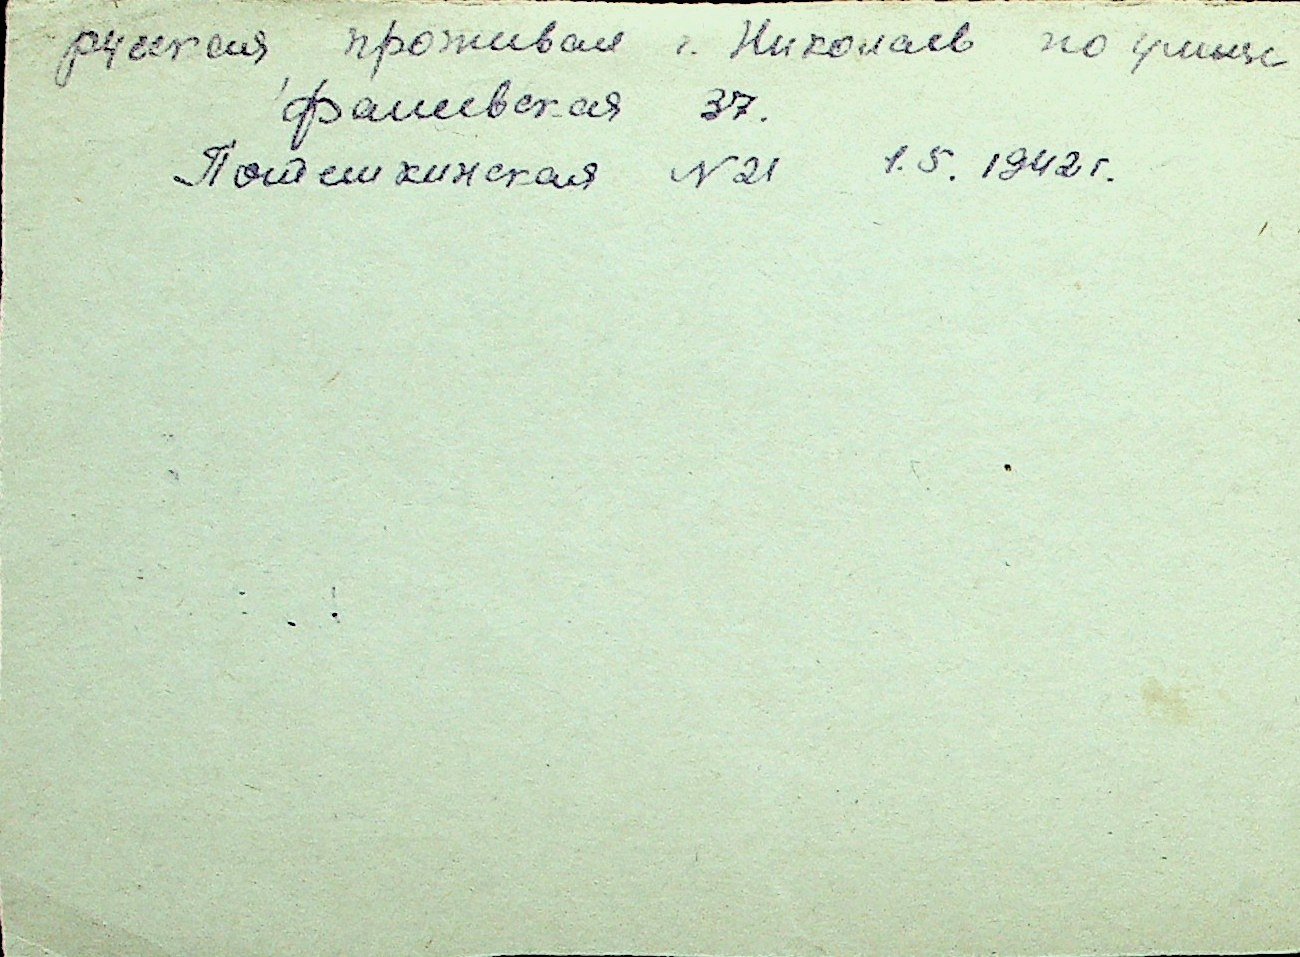 русская проживал г. Николаев по улице
Фалиевская 37.
Потемкинская N 21 1.5.1942 г.